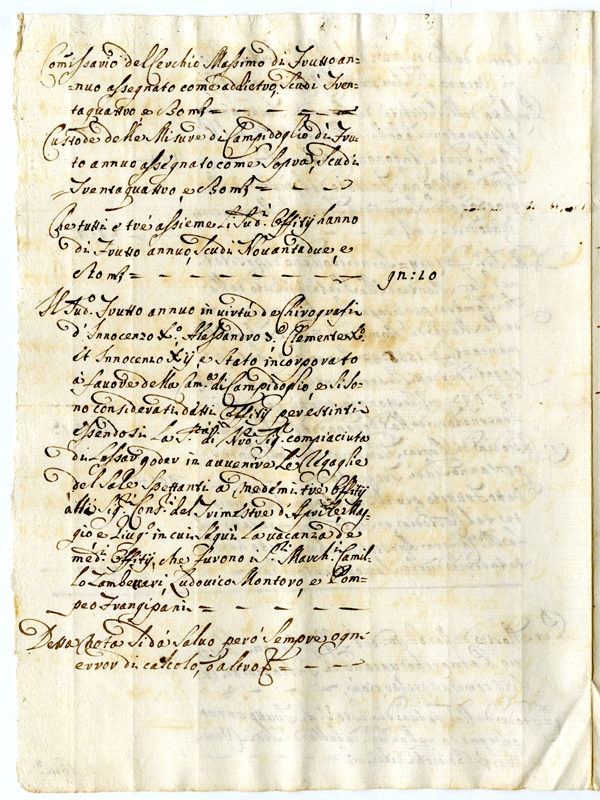 Com̃issario del Cerchio Massimo di Frutto an=
=nuo assegnato come addietro, Scudi Tren=
taquattro e Bom̃i = — — — — —
Custode delle Misure di Campidoglio di Fru=
to annuo assegnato come Sopra, Scudi
Trentaquattro, e Bom̃i = — — —
Che tutti e trè assieme li Sud.i Offitij hanno
di Frutto annuo, Scudi Novantadue, e
Bom̃i = — — — — — — — 92:10
Il Sud.o Frutto annuo in virtù de Chirografi
d'Innocenzo X.o, Alessandro 8.o, Clemente X.o
et Innocenzo XII, e Stato incorporato
à favore della Cam.a di Campidoglio, e Si So=
no considerati detti Offitij per estinti
essendosi La S.tà di N'ro Sig.re compiaciuta
di Lassar goder in avvenire Le Regaglie
del Sale Spettanti a medemi trè Offitij
alli Sig.i Cons.ri del Trimestre d'Aprile, Mag=
gio e Giug.o in cui Seguì La vacanza de
med.i Offitij, che furono i S.ri March.e Camil=
lo Lambertari, Ludovico Montoro, e Pom=
peo Frangipani = — — — —
Detta Nota Si dà Salvo però Sempre ogni
error di calcolo, ò altro = — — —